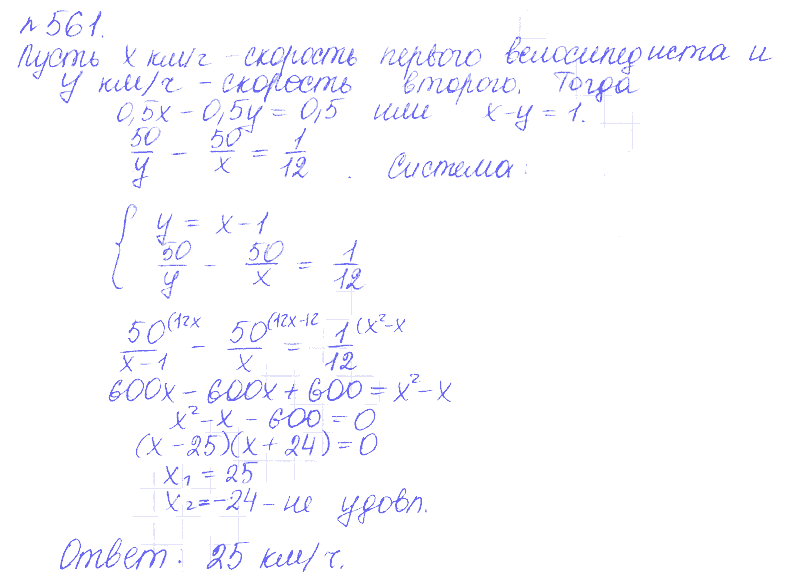 №561.
Пусть x км/ч - скорость первого велосипедиста и
y км/ч - скорость второго. Тогда
0,5x - 0,5y = 0,5 или x - y = 1.
50/y - 50/x = 1/12. Система:
{ y = x - 1
50/y - 50/x = 1/12
50/(x-1) (12x - 50/x (12x-12 = 1/12 (x²-x
600x - 600x + 600 = x² - x
x² - x - 600 = 0
(x - 25)(x + 24) = 0
x₁ = 25
x₂ = -24 - не удовл.
Ответ: 25 км/ч.